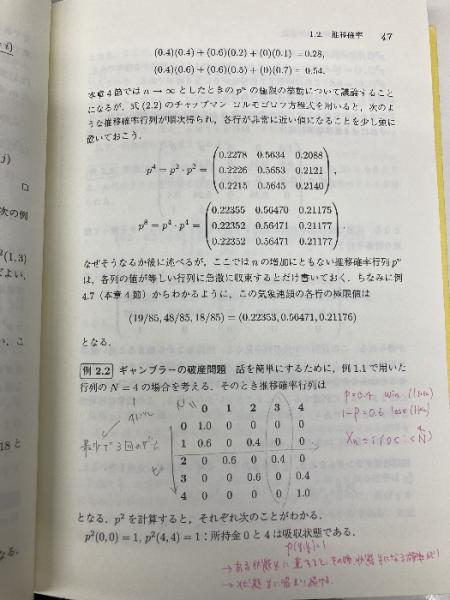 1.2. 推移確率 47
(0.4)(0.4) + (0.6)(0.2) + (0)(0.1) = 0.28,
(0.4)(0.6) + (0.6)(0.5) + (0)(0.7) = 0.54.
本章4節では n → ∞ としたときの pⁿ の極限の挙動について議論すること
になるが, 式(2.2)のチャップマン コルモゴロフ方程式を用いると, 次のよ
うな推移確率行列が順次得られ, 各行が非常に近い値になることを少し頭に
置いておこう.
p⁴ = p² · p² =
0.2278 0.5634 0.2088
0.2226 0.5653 0.2121
0.2215 0.5645 0.2140
,
p⁸ = p⁴ · p⁴ =
0.22355 0.56470 0.21175
0.22352 0.56471 0.21177
0.22352 0.56471 0.21177
.
なぜそうなるか後に述べるが, ここでは n の増加にともない推移確率行列 pⁿ
は, 各列の値が等しい行列に急激に収束するとだけ書いておく. ちなみに例
4.7 (本章4節) からわかるように, この気象連鎖の各行の極限値は
(19/85, 48/85, 18/85) = (0.22353, 0.56471, 0.21176)
となる.
例 2.2 ギャンブラーの破産問題 話を簡単にするために, 例1.1で用いた
行列の N = 4 の場合を考える. そのとき推移確率行列は
p=0.4 win
1-p=0.6 lose
0 1 2 3 4
0 1.0 0 0 0 0
1 0.6 0 0.4 0 0
2 0 0.6 0 0.4 0
3 0 0 0.6 0 0.4
4 0 0 0 0 1.0
となる. p² を計算すると, それぞれ次のことがわかる.
p²(0,0) = 1, p²(4,4) = 1 : 所持金 0 と 4 は吸収状態である.
i)
j)
次の例
²(1,3)
ばよい.
い, こ
18 と
なる.